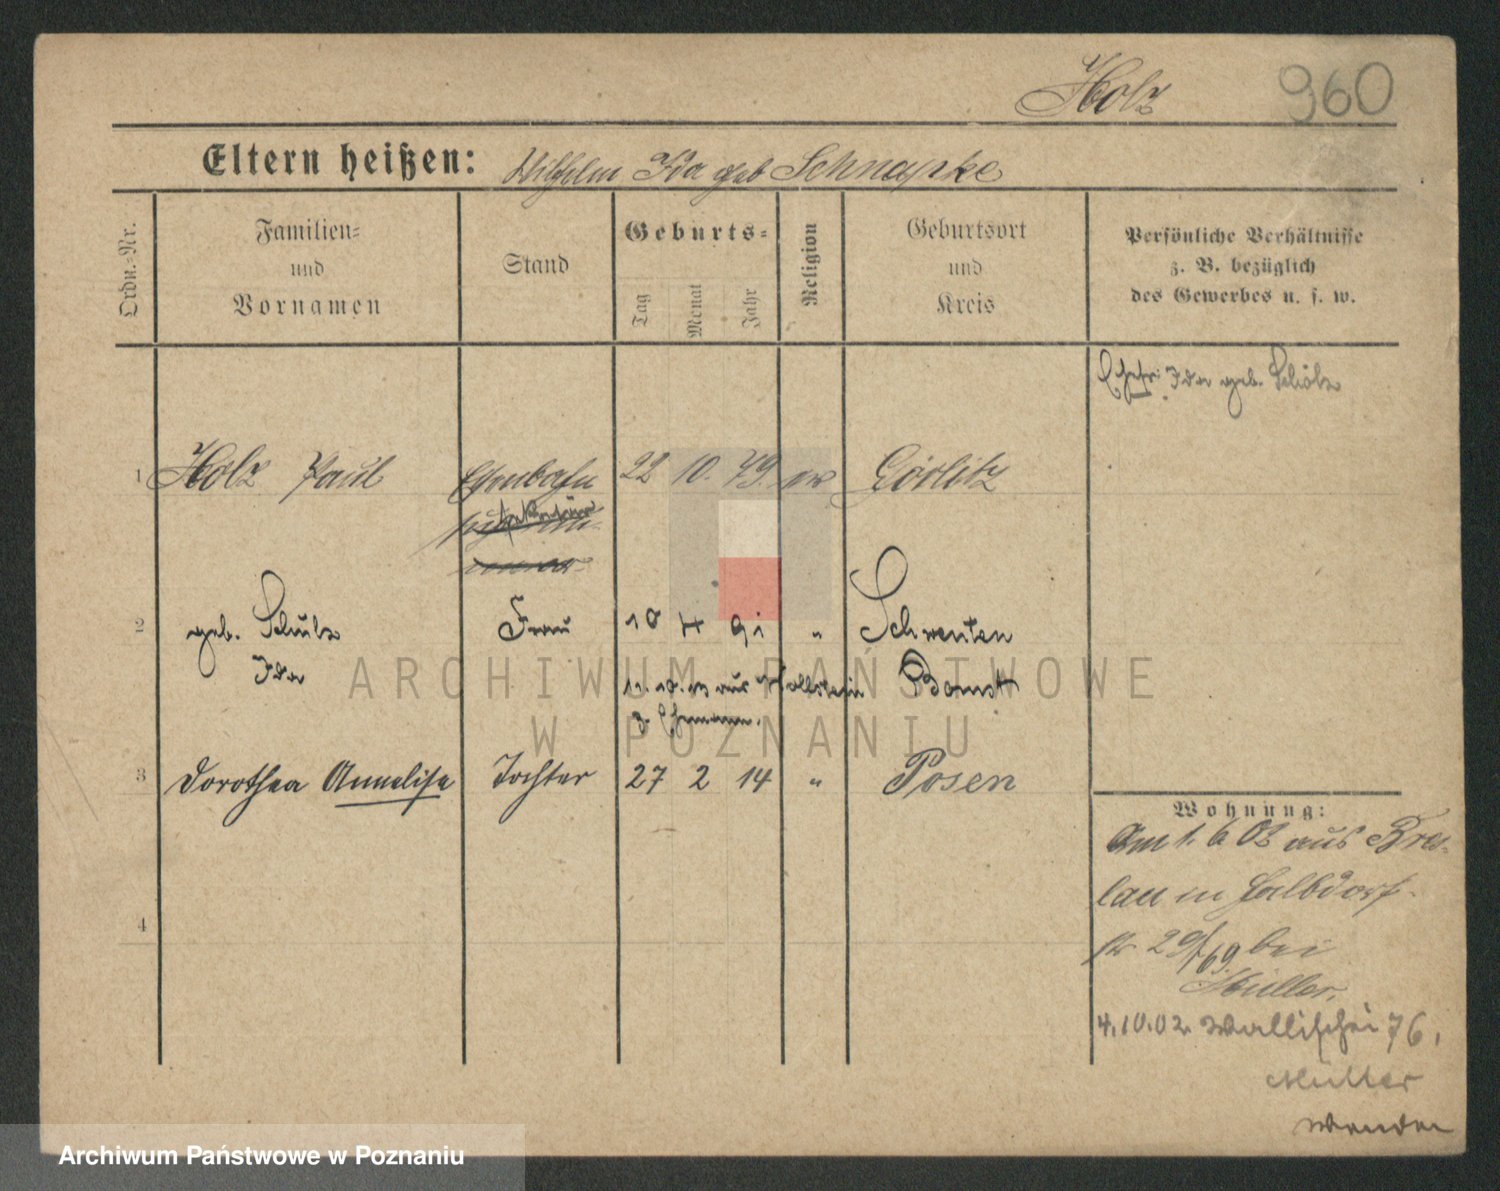 Holz 960
Eltern heißen: Wilhelm Ida geb Schnapke
Ordn.-Nr.
Familien-
und
Vornamen
Stand
Geburts-
Tag
Monat
Jahr
Religion
Geburtsort
und
Kreis
Persönliche Verhältnisse
z. B. bezüglich
des Gewerbes u. s. w.
Ehefr. Ida geb. Schulz
1 Holz Paul Eisenbahn 22 10. 79. ev Görlitz
2 geb. Schulz Frau 18 4 91 " Schwenten
Ida Bomst
11. 10. 13 aus Wollstein
z. Ehemann.
3 Dorothea Annelise Tochter 27 2 14 " Posen
4
Wohnung:
Am 1. 6 02 aus Bres-
lau in Halbdorf-
str 29/ bei
Müller.
4.10.02. Wallischei 76,
Müller
wenden
ARCHIWUM PAŃSTWOWE
W POZNANIU
Archiwum Państwowe w Poznaniu